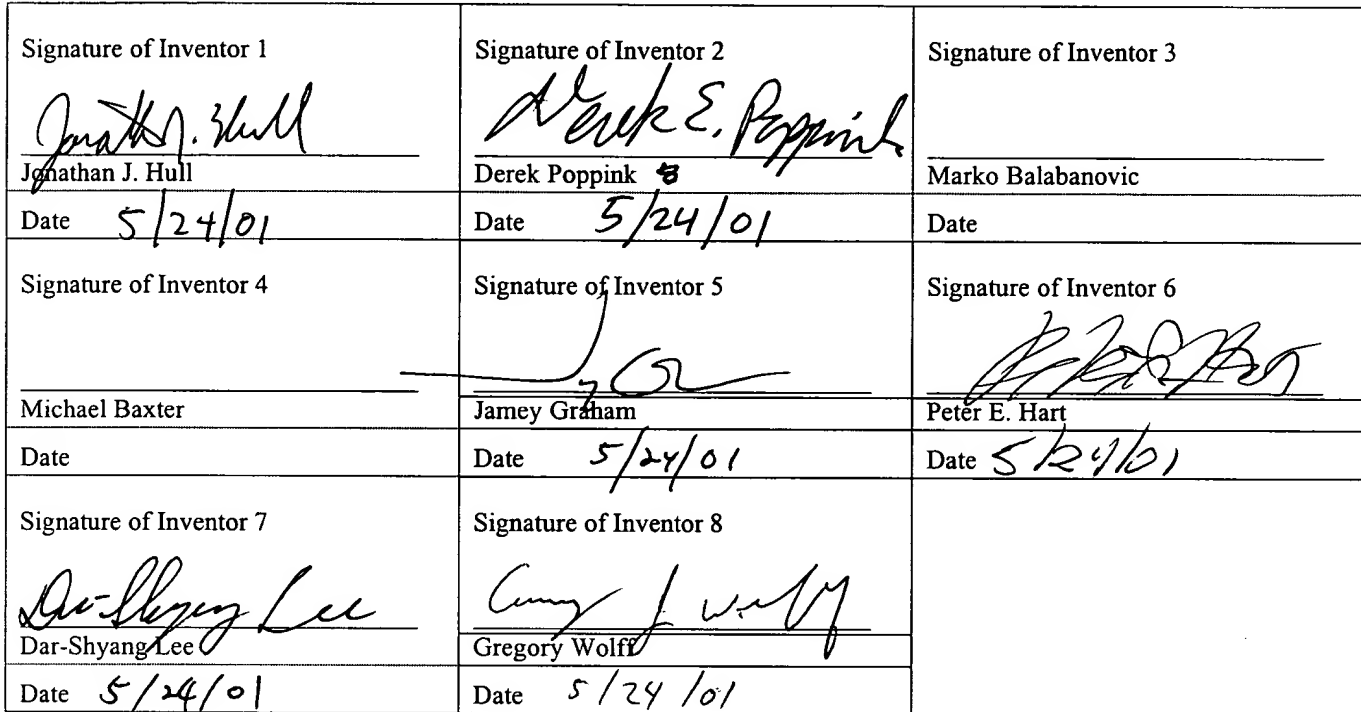 Signature of Inventor 1
Signature of Inventor 2
Signature of Inventor 3
Jonathan J. Hull
Derek E. Poppink
Jonathan J. Hull
Derek Poppink
Marko Balabanovic
Date 5/24/01
Date 5/24/01
Date
Signature of Inventor 4
Signature of Inventor 5
Signature of Inventor 6
Michael Baxter
Jamey Graham
Peter E. Hart
Date
Date 5/24/01
Date 5/24/01
Signature of Inventor 7
Signature of Inventor 8
Dar-Shyang Lee
Dar-Shyang Lee
Gregory Wolff
Date 5/24/01
Date 5/24/01